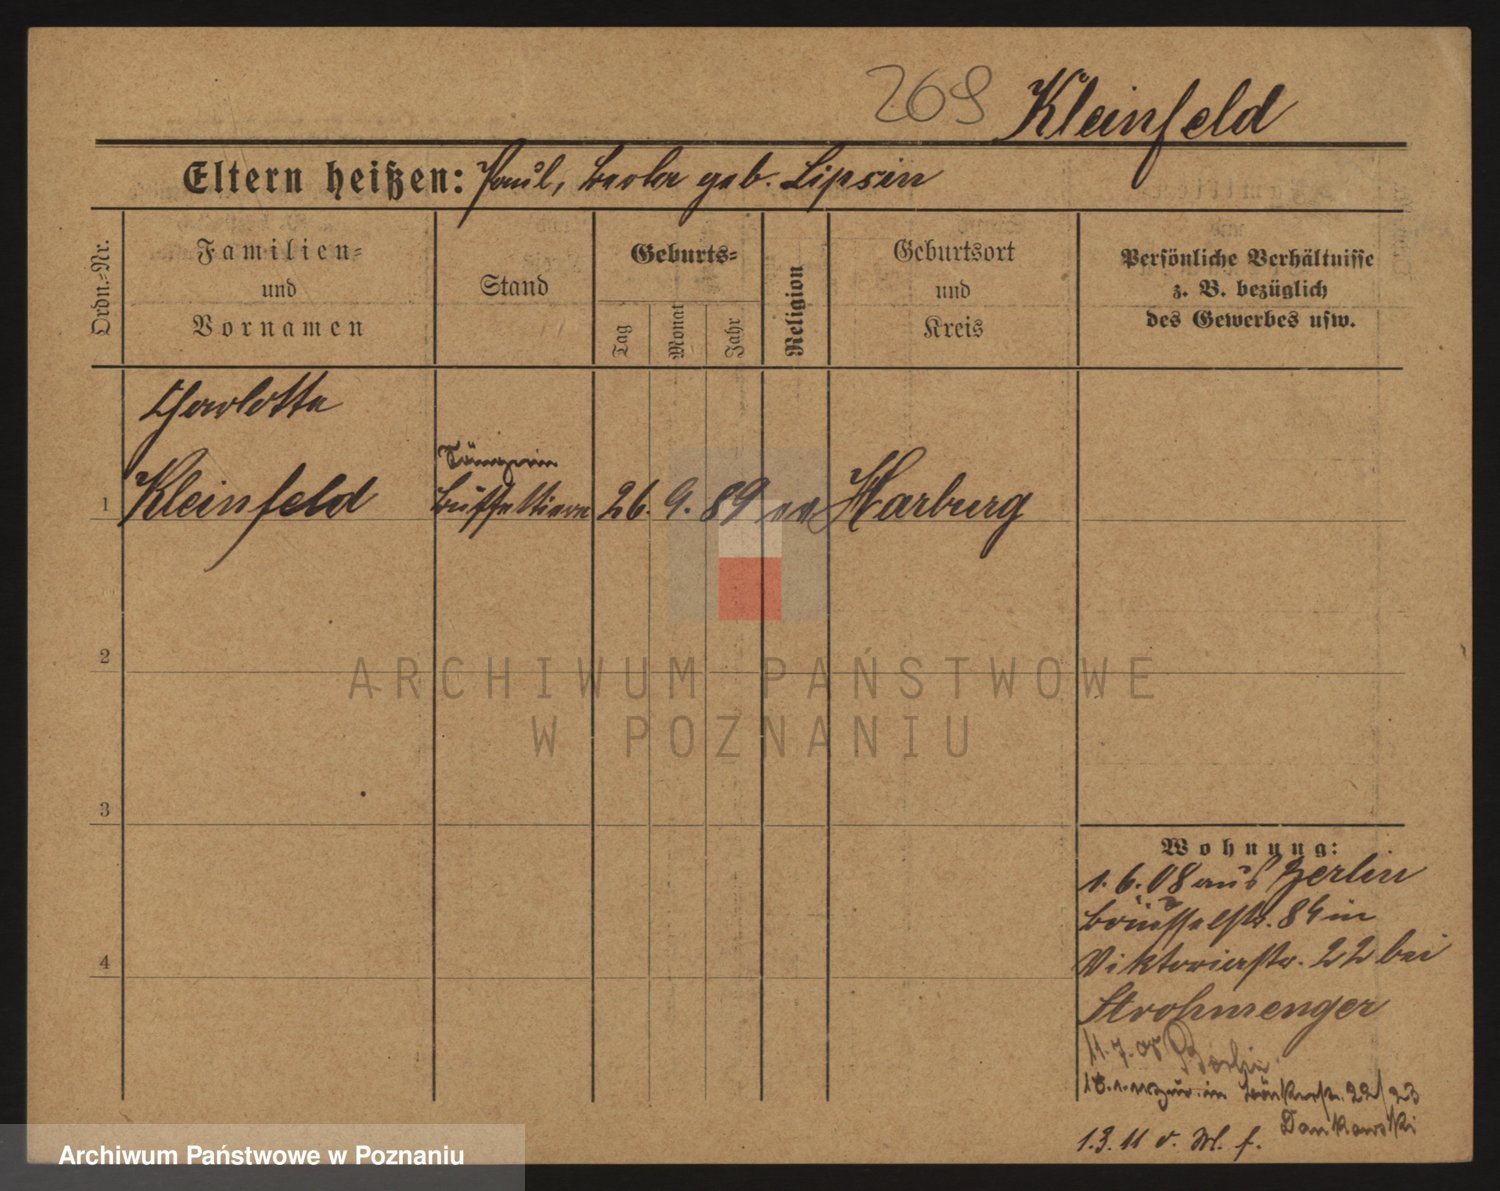 269 Kleinfeld
Eltern heißen: Paul, Berta geb. Lipsin
Ordn.-Nr.
Familien-
und
Vornamen
Stand
Geburts-
Tag
Monat
Jahr
Religion
Geburtsort
und
Kreis
Persönliche Verhältnisse
z. B. bezüglich
des Gewerbes usw.
Charlotte
Sängerin
1 Kleinfeld Büffettiere 26. 9. 89 ev Harburg
2
3
4
ARCHIWUM PAŃSTWOWE
W POZNANIU
Wohnung:
1. 6. 08 aus Berlin
Brüsselstr. 84 in
Viktoriastr. 22 bei
Strohmenger
11. 7. 08 Berlin
zur. in 22/23
Dankowski
1.3.11 v. M. f.
Archiwum Państwowe w Poznaniu